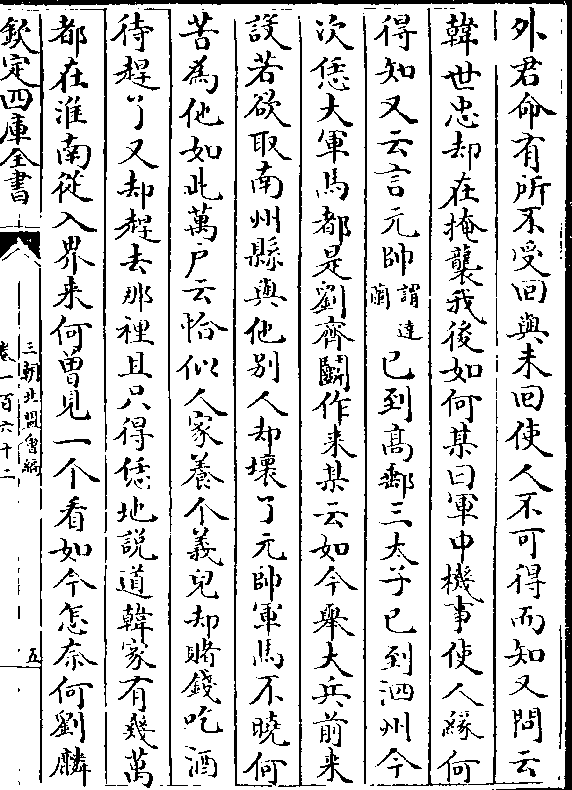 外君命有所不受回與未回使人不可得而知又問云
韓世忠却在掩襲我後如何某曰軍中機事使人緣何
得知又云言元帥謂達蘭已到高郵三太子已到泗州今
次恁大軍馬都是劉齊鬭作来某云如今舉大兵前来
設若欲取南州縣與他别人却壞了元帥軍馬不曉何
苦為他如此萬户云恰似人家養个義兒却賭錢吃酒
待趕了又却趕去那裡且只得恁地說道韓家有幾萬
都在淮南從入界来何曾見一个看如今怎奈何劉麟
欽定四庫全書
三朝北盟會編
卷一百六十二
五